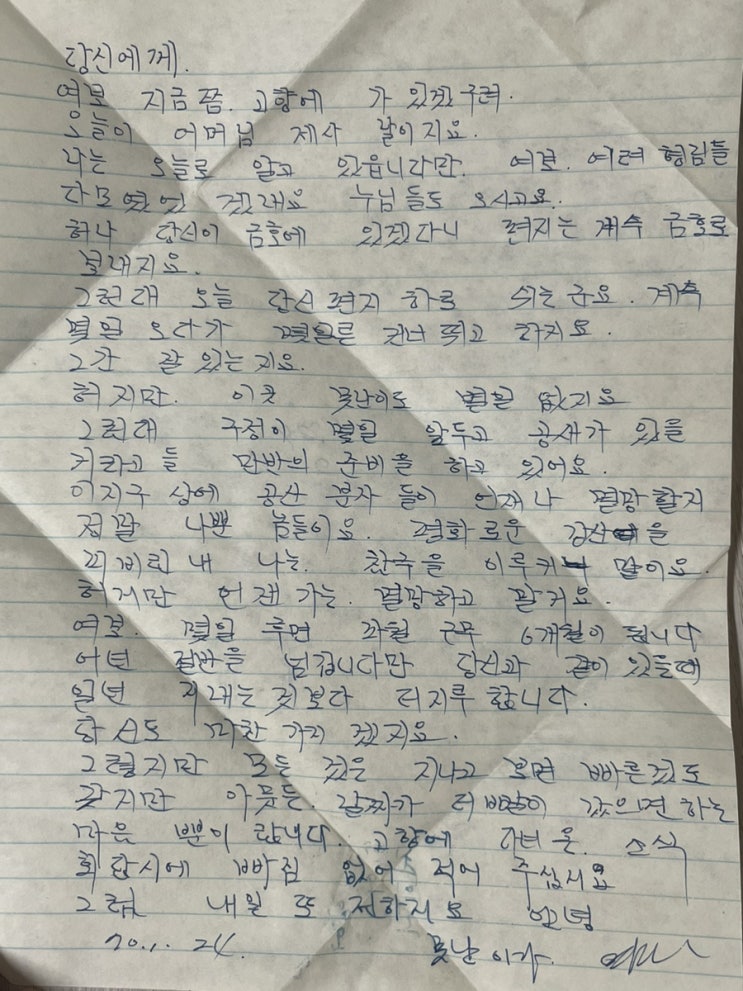 당신에게.
여보 지금쯤. 고향에 가 있겠구려.
오늘이 어머님 제사 날이지요.
나는 오늘로 알고 있읍니다만. 여보. 여려 형림들
다모였있 겠래요 누님들도 오시고요.
허나 당신이 금호에 있겠다니 편지는 계속 금호로
보내지요.
그런대 오늘 당신 편지 하루 쉬는군요. 계속
몇일 오다가 몇일른 건너 뛰고 하지요.
그간 잘 있는지요.
허지만. 이곳 못난이도 별일 없지요
그런대 구정이 몇일 앞두고 공세가 있을
거라고들 만반의 준비을 하고 있어요.
이지구 상에 공산 분자 들이 언재나 멸망할지
정말 나쁜 놈들이요. 평화로운 강산을
피비린내 나는. 참극을 이루커 말이요.
허지만 언젠가는. 멸망하고 말거요.
여보. 몇일 후면 파월 근무 6개월이 됩니다
어년 절반을 넘깁니다만 당신과 같이 있을때
일년 지내는 것보다 더지루 합니다.
당신도 마찬가지 겠지요.
그렇지만 모든 것은 지나고 보면 빠른것도
같지만 아뭇튼. 날짜가 더 빨이 갔으면 하는
마음 뿐이랍니다. 고향에 다녀온. 소식
회답시에 빠짐 없어 적어 주십시요
그럼 내일 또 전하지요 안녕
70.1.24. 못난이가.